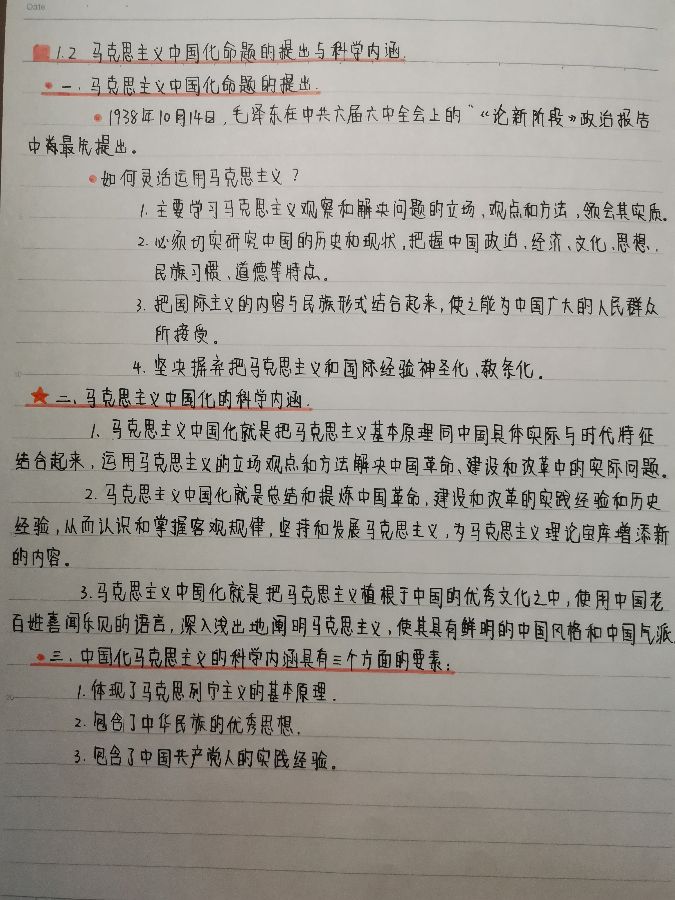 Date
1.2 马克思主义中国化命题的提出与科学内涵.
一.马克思主义中国化命题的提出.
1938年10月14日,毛泽东在中共六届六中全会上的"《论新阶段》政治报告
中首最先提出。
如何灵活运用马克思主义?
1. 主要学习马克思主义观察和解决问题的立场、观点和方法,领会其实质。
2. 必须切实研究中国的历史和现状,把握中国政治、经济、文化、思想、
民族习惯、道德等特点。
3. 把国际主义的内容与民族形式结合起来,使之能为中国广大的人民群众
所接受。
4. 坚决摒弃把马克思主义和国际经验神圣化、教条化。
二、马克思主义中国化的科学内涵.
1、马克思主义中国化就是把马克思主义基本原理同中国具体实际与时代特征
结合起来,运用马克思主义的立场观点和方法解决中国革命、建设和改革中的实际问题。
2. 马克思主义中国化就是总结和提炼中国革命,建设和改革的实践经验和历史
经验,从而认识和掌握客观规律,坚持和发展马克思主义,为马克思主义理论宝库增添新
的内容。
3.马克思主义中国化就是把马克思主义植根于中国的优秀文化之中,使用中国老
百姓喜闻乐见的语言,深入浅出地阐明马克思主义,使其具有鲜明的中国风格和中国气派.
三、中国化马克思主义的科学内涵具有三个方面的要素:
1.体现了马克思列宁主义的基本原理.
2.包含了中华民族的优秀思想.
3.包含了中国共产党人的实践经验。